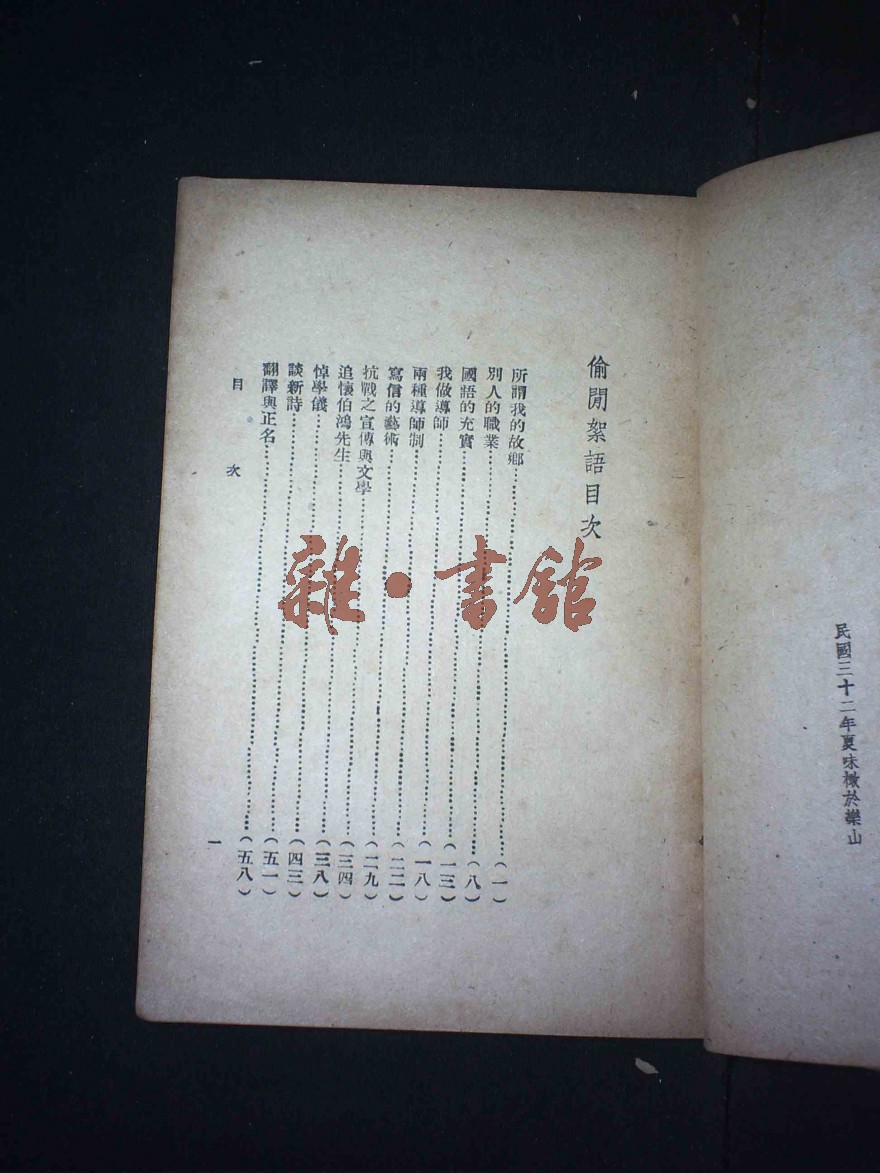 民國三十二年夏味橄於樂山
偷閒絮語目次
所謂我的故鄉……(一)
別人的職業……(八)
國語的充實……(一三)
我做導師……(一八)
兩種導師制……(二二)
寫信的藝術……(二九)
抗戰之宣傳與文學……(三四)
追懷伯鴻先生……(三八)
悼學儀……(四三)
談新詩……(五一)
翻譯與正名……(五八)
目次 一
雜·書館